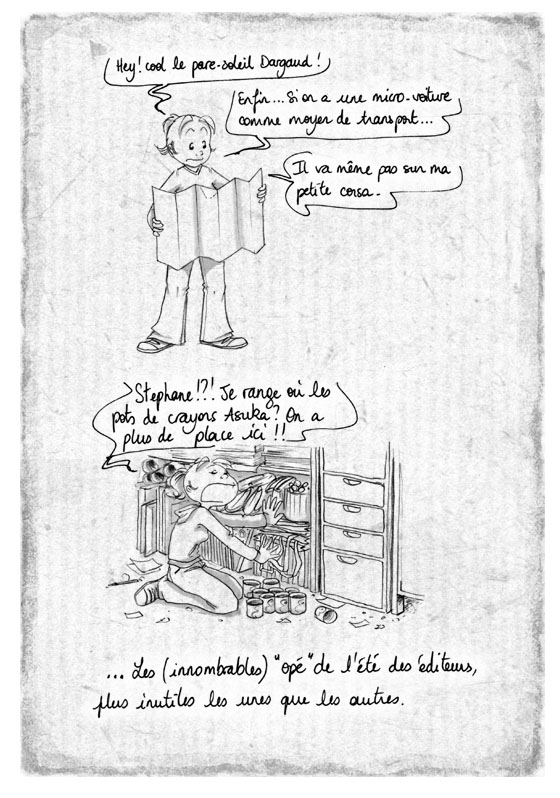 Hey! cool le pare-soleil Dargaud !
Enfin... Si on a une micro-voiture
comme moyen de transport...
Il va même pas sur ma
petite corsa.
Stephane!?! Je range où les
pots de crayons Asuka? On a
plus de place ici !!
... Les (innombrables) "opé" de l'été des éditeurs,
plus inutiles les unes que les autres.